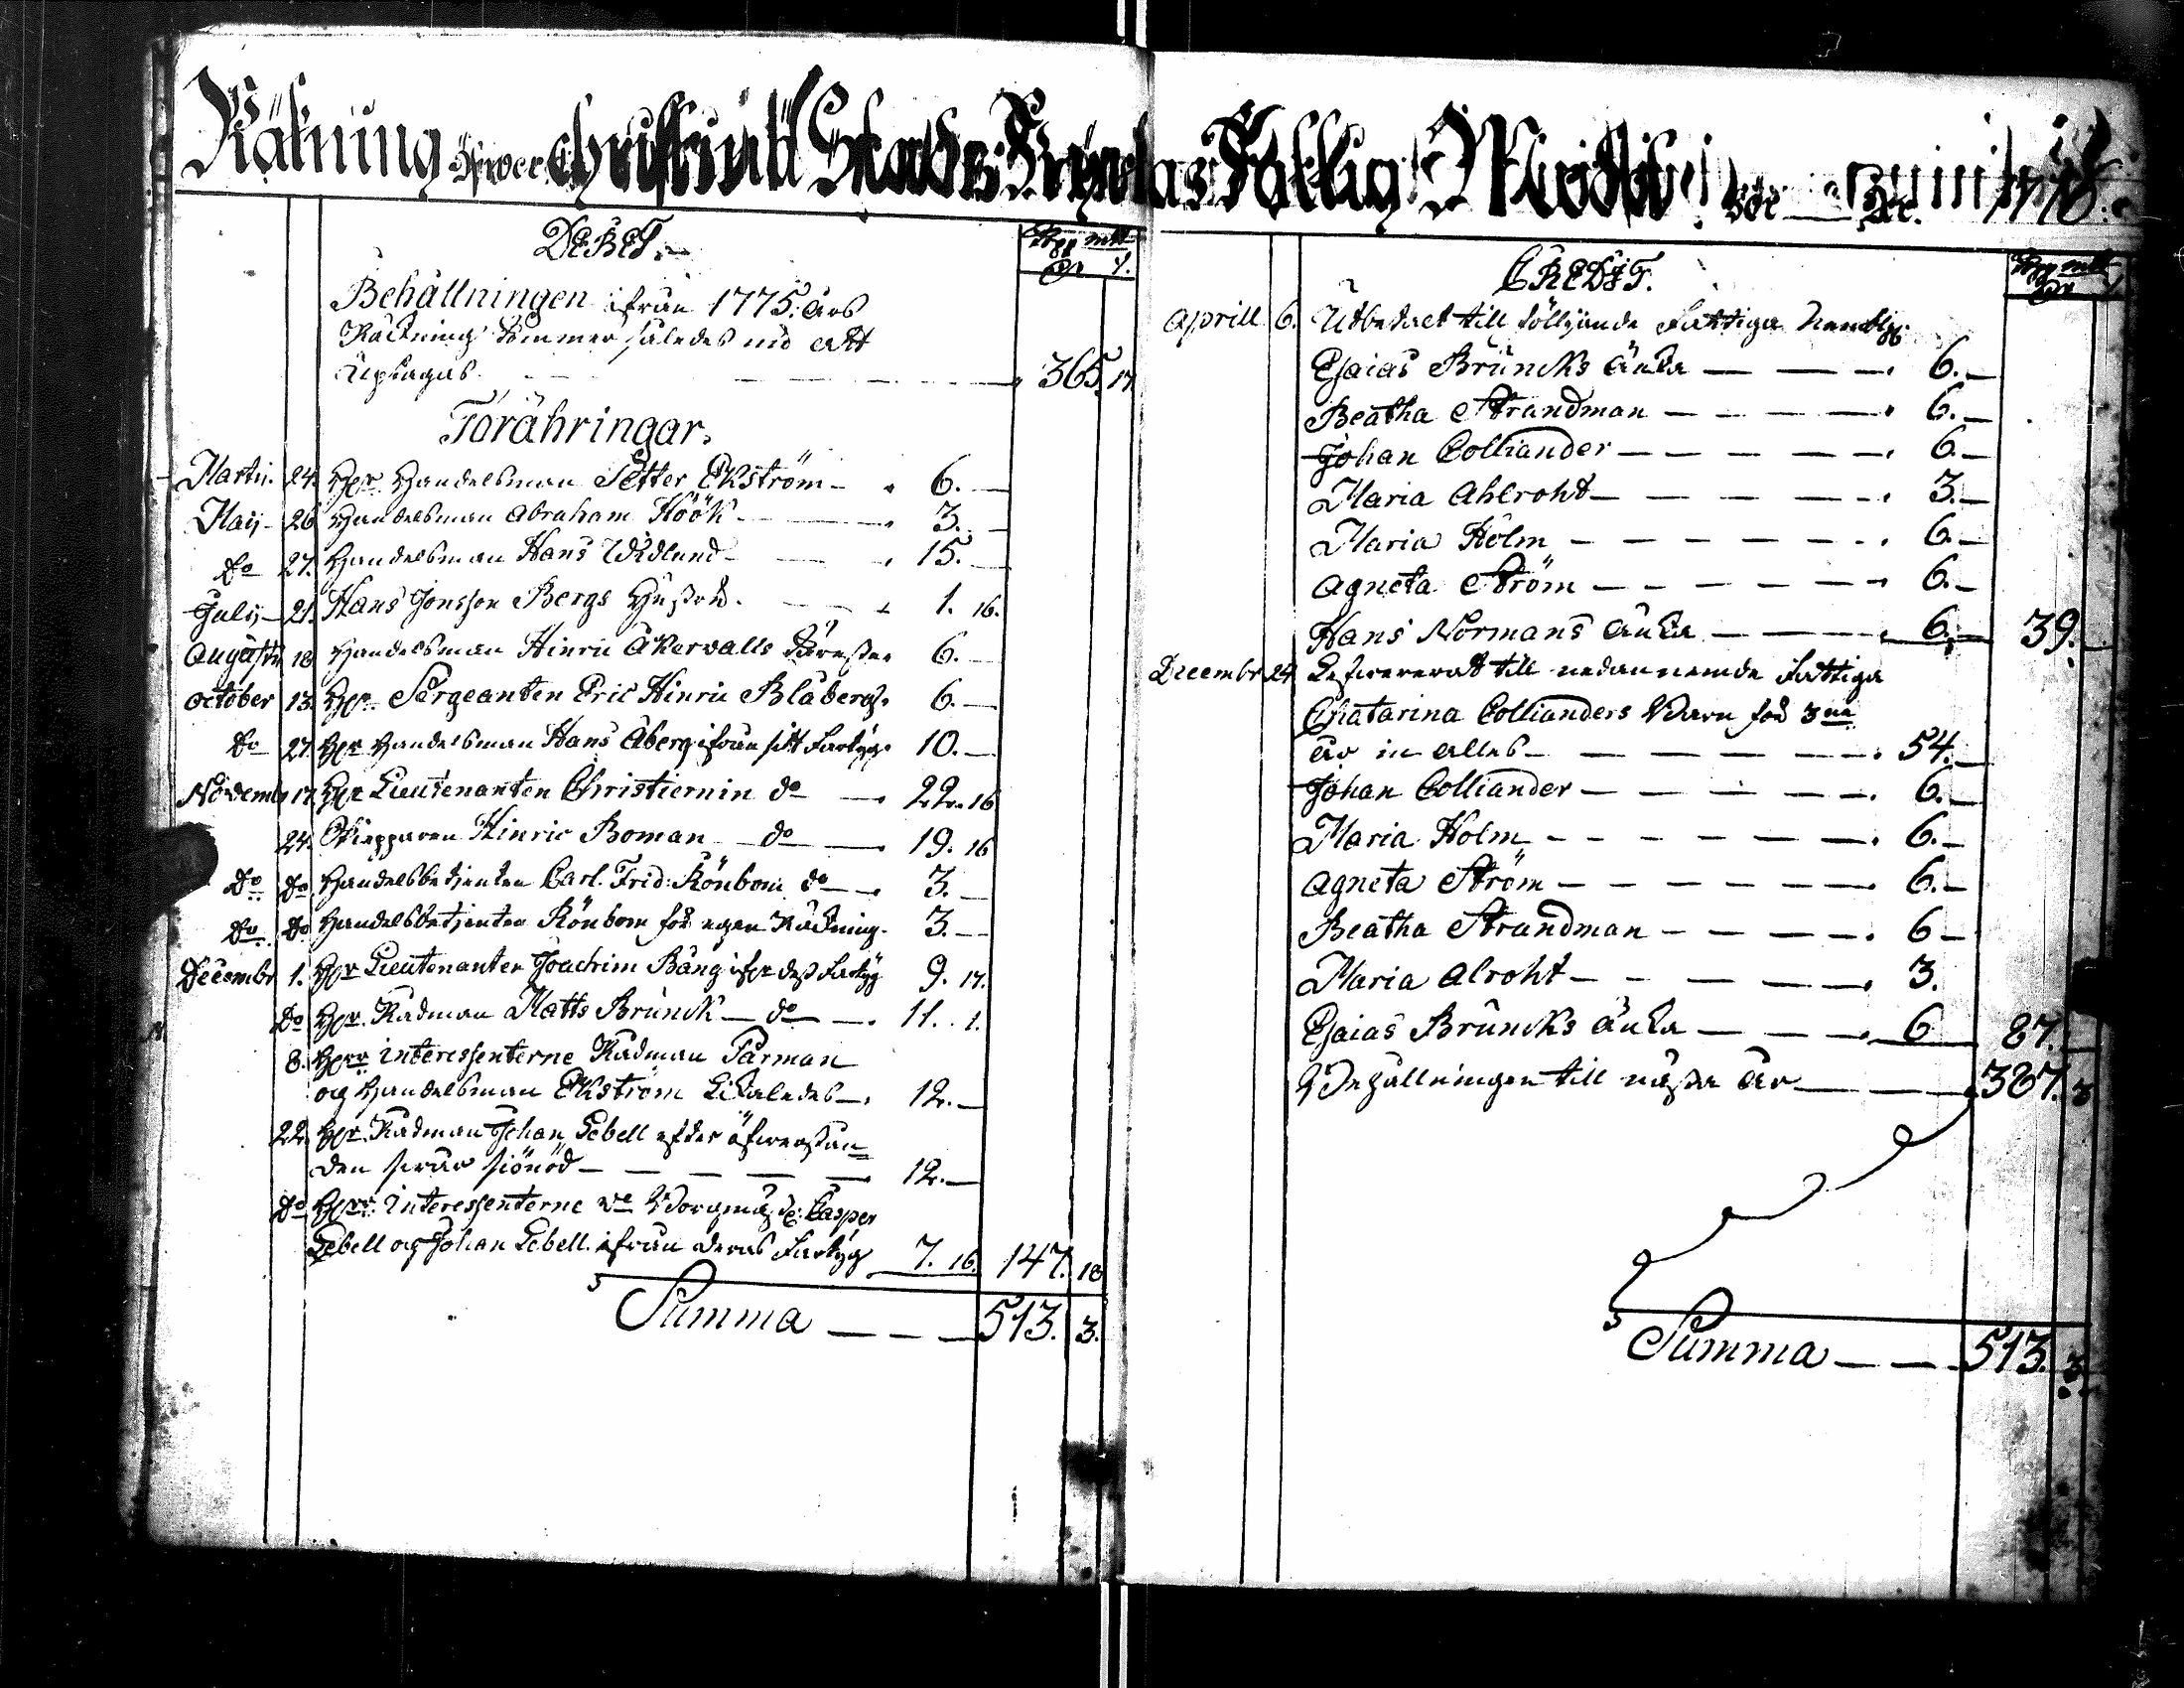 Räkning öfwer Christinæ Stads Fattig
DEBET.
Behållningen ifrån 1775. års
Räckning kommer således nid att
Uptagas 365. 17
Förähringar.
Martii. 24. Hr Handelsman Petter Ekström 6.
Maij 26 Handelsman Abraham Höök 3.
do 27. Handelsman Hans Widlund 15.
Julij 21. Hans Jonsson Bergs Hustru 1. 16.
Augusti 18 Handelsman Hinric Åkervalls 6.
October 13. Hr Sergeanten Eric Hinric Blåberg 6.
do 27. Hr Handelsman Hans Åberg ifrån sitt Fartyg 10.
Novemb 17. Hr Lieutenanten Christiernin do 22. 16
24. Skepparen Hinric Boman do 19. 16
do do Handelsbetjenten Carl. Frid: Rönbom do 3.
do do Handelsbetjenten Rönbom för egen Räckning 3.
Decembr 1. Hr Lieutenanten Joachim Bäng ifr dess Fartyg 9. 17.
do Hr Rådman Matts Brunck do 11. 1.
8. Herr Interessenterne Rådman Parman
och Handelsman Ekström Likaledes 12.
22 Hr Rådman Johan Lebell efter öfwerstån=
den swår siönöd 12.
do Herr Interessenterne Borgmäst: Casper
Lebell och Johan Lebell ifrån deras Fartyg 7. 16. 147. 18
Summa 513. 3.
CREDIT.
Aprill 6. Utbetalt till föllljande Fattiga
Esaias Bruncks Änka 6.
Beatha Strandman 6.
Johan Colliander 6.
Maria Ahlroht 3.
Maria Holm 6.
Agneta Ström 6.
Hans Normans Änka 6. 39.
Decembr 24 Lefwererat till nedannemde Fattiga
Chatarina Collianders Barn för 3ne
år in alles 54.
Johan Colliander 6.
Maria Holm 6.
Agneta Ström 6.
Beatha Strandman 6
Maria Alroht 3.
Esaias Bruncks Änka 6 87.
Behållningen till nästa År 387. 3
Summa 513. 3